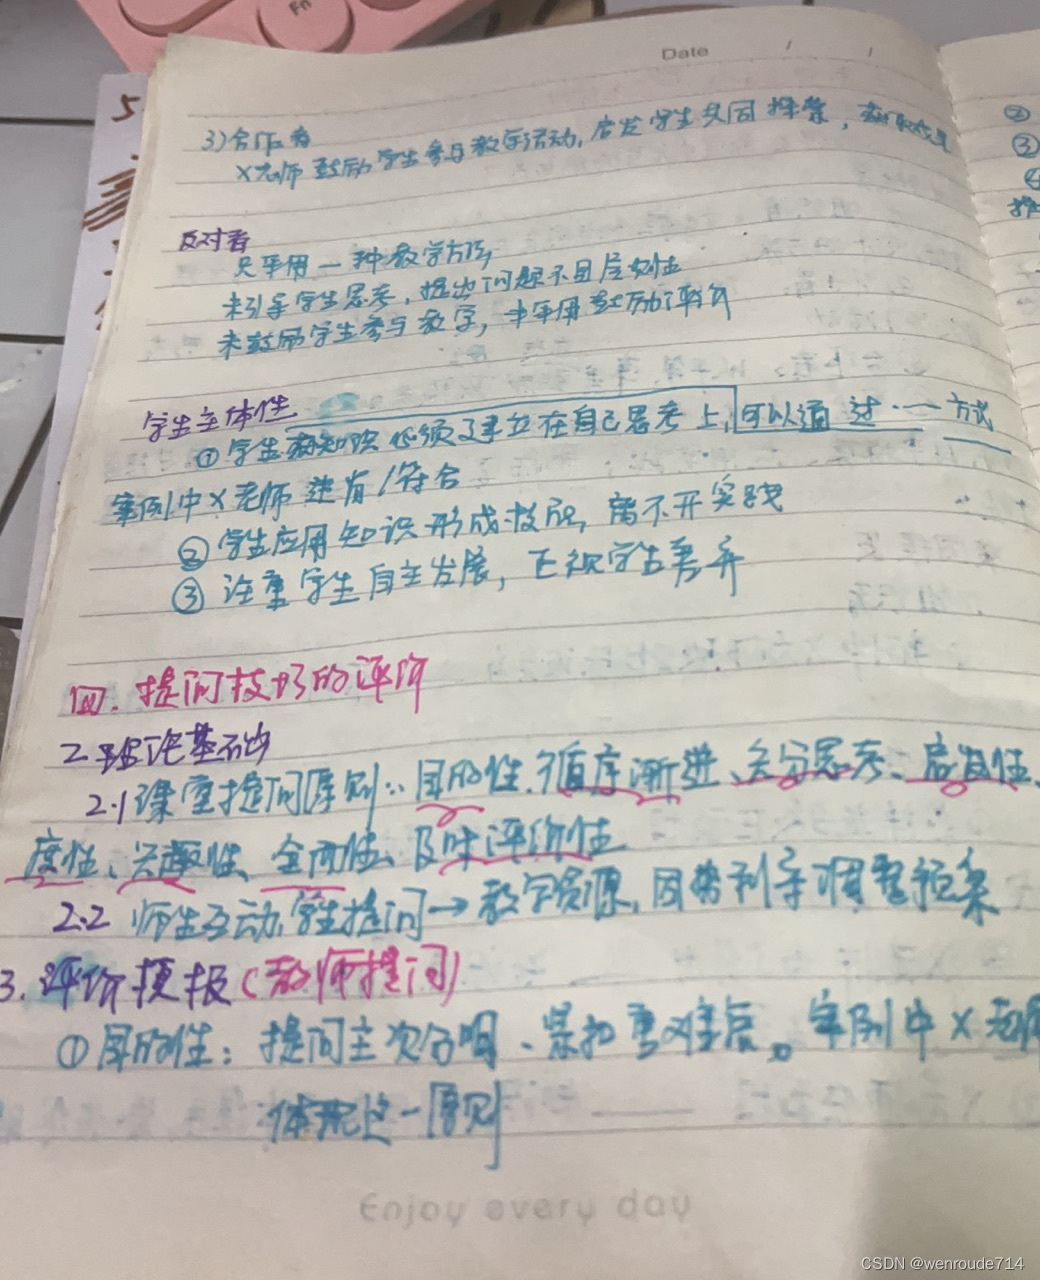 Fn
Date / /
5
3)合作者
X老师鼓励学生参与教学活动,启发学生共同探索,获取成果
②
③
反对者
只采用一种教学方法,
未引导学生思考,提出问题不具启发性
未鼓励学生参与教学,未采用鼓励评价
学生主体性
①学生获知识必须建立在自己思考上,可以通过……方式
案例中X老师 没有/符合
②学生应用知识形成技能,离不开实践
③注重学生自主发展,正视学生差异
四.提问技巧的评价
2.理论基础
2.1课堂提问原则:目的性、循序渐进、充分思考、启发性、
度性、兴趣性、全面性、及时评价性
2.2 师生互动,学生提问→教学资源,因势利导调整预案
3.评价模板(教师提问)
①目的性:提问主次分明、紧扣重难点。案例中X老师
体现这一原则
Enjoy every day
CSDN @wenroude714